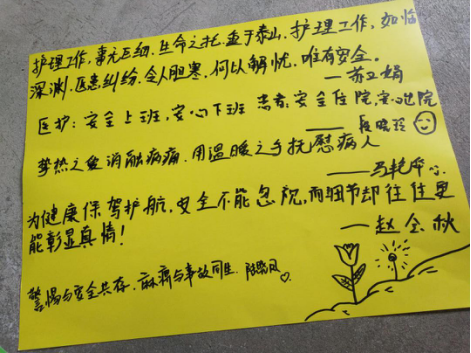 护理工作,事无巨细,生命之托,重于泰山,护理工作,如临
深渊,医患纠纷,令人胆寒,何以解忧,唯有安全。
—苏卫娟
医护:安全上班,安心下班 患者:安全住院,安心出院
——段晓玲
挚热之爱消融病痛,用温暖之手抚慰病人
——马艳
为健康保驾护航,安全不能忽视,而细节却往往更
能彰显真情!
—赵会秋
警惕与安全共存,麻痹与事故同生,